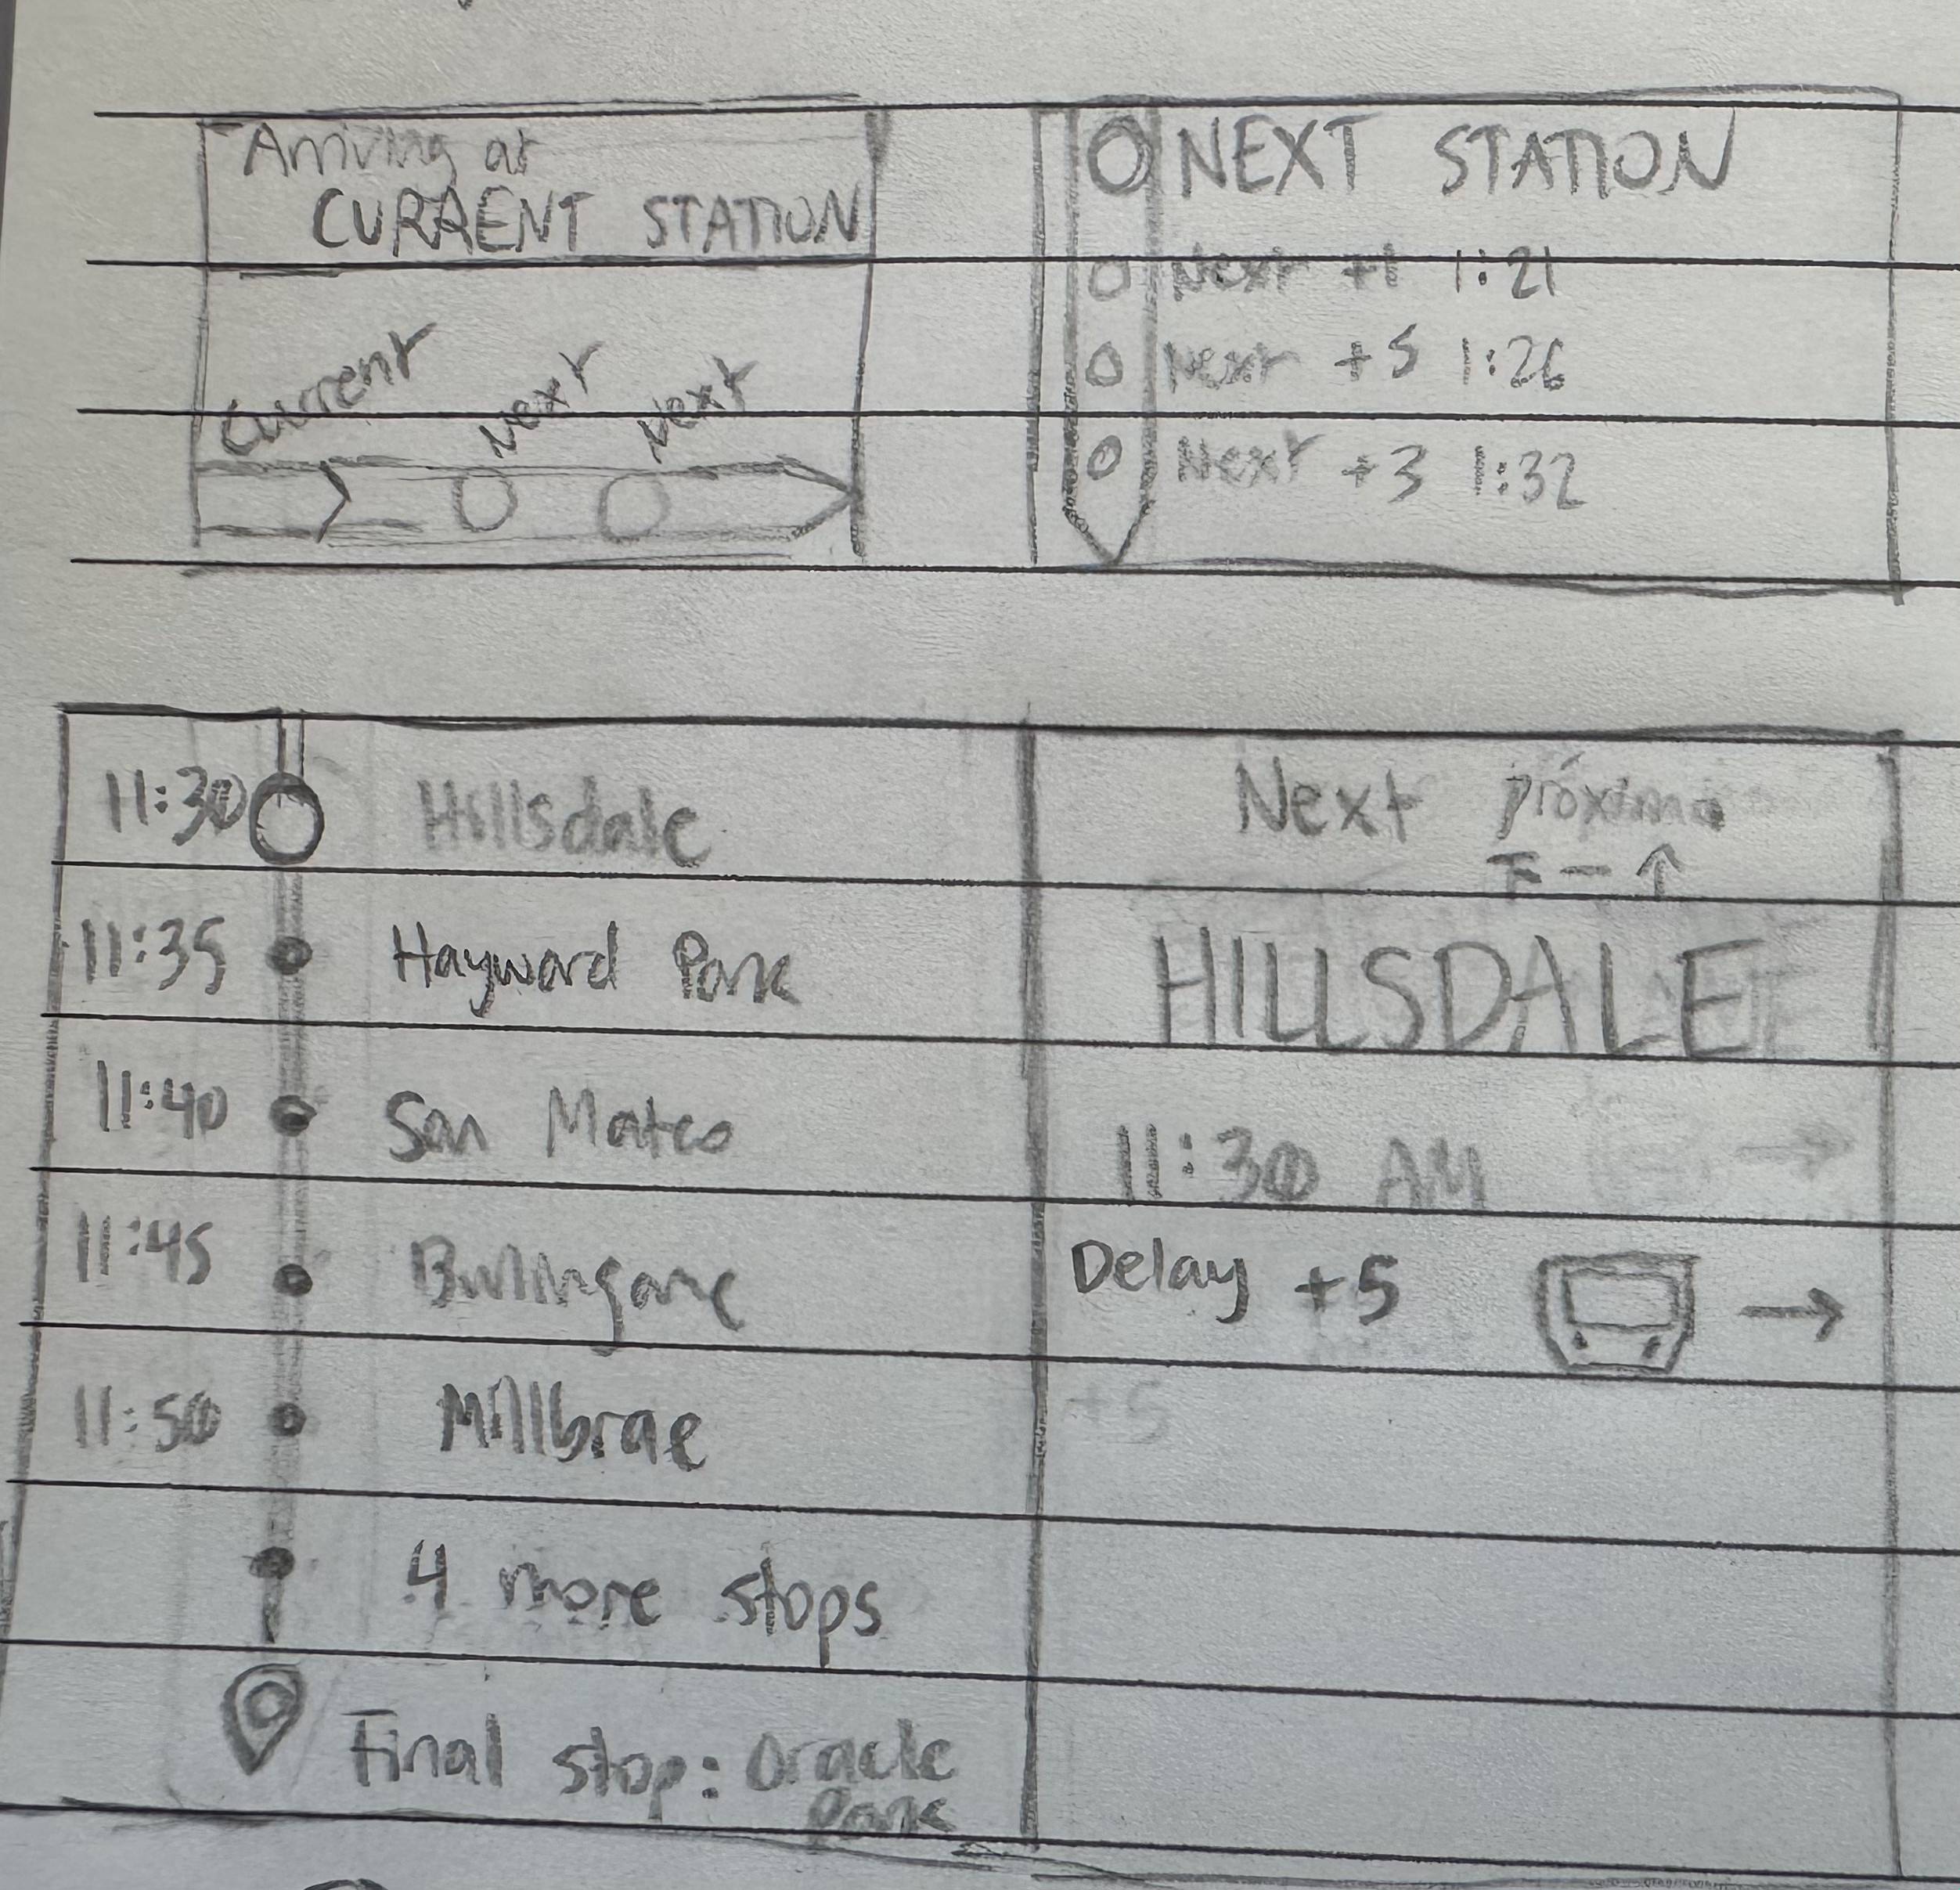 Arriving at
CURRENT STATION
Current Next Next
NEXT STATION
Next +1 1:21
Next +5 1:26
Next +3 1:32
11:30 Hillsdale
11:35 Hayward Park
11:40 San Mateo
11:45 Burlingame
11:50 Millbrae
4 more stops
Final stop: Oracle
Park
Next próxima
下一个
HILLSDALE
11:30 AM
Delay +5 →
+5